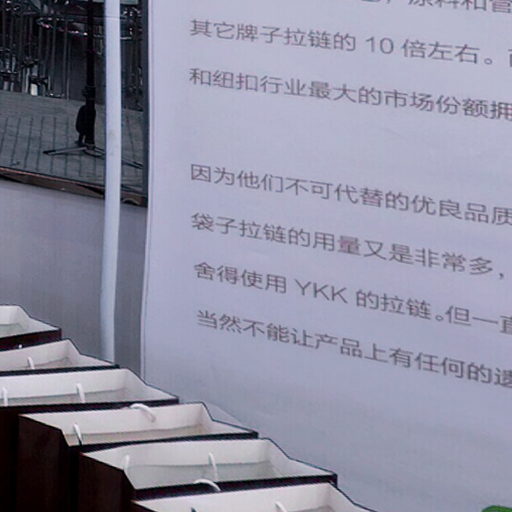 原料和管
其它牌子拉链的 10 倍左右。
和纽扣行业最大的市场份额拥
因为他们不可代替的优良品质
袋子拉链的用量又是非常多，
舍得使用 YKK 的拉链。但一直
当然不能让产品上有任何的遗